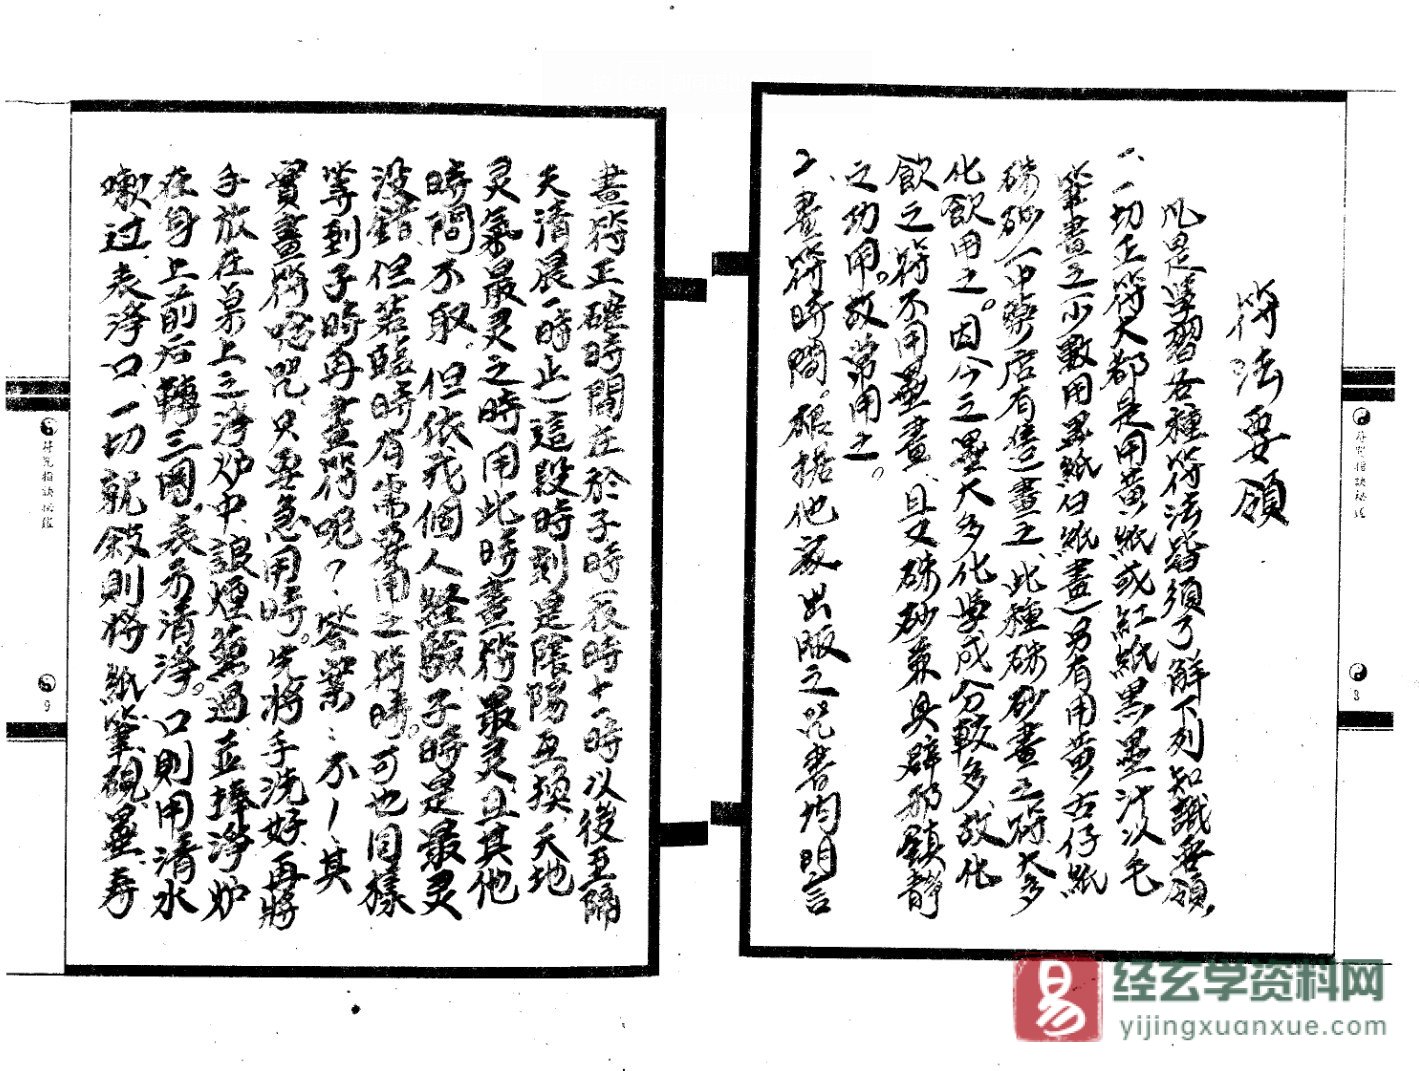 符法要領
凡是學習各種符法皆須了解下列知識要領,
一、一切正符大都是用黃紙或紅紙黑墨汁以毛
筆畫之少數用黑紙白紙畫)另有用黃古仔紙
硃砂(中藥店有售)畫之、此種硃砂畫之符大多
化飲用之。因今之墨大多化學成分較多、故化
飲之符不用墨畫、且又硃砂兼具辟邪鎮靜
之功用。故常用之。
2、畫符時間。根據他家出版之咒書均明言
符咒指訣秘鑑
8
畫符正確時間在於子時(夜時十一時以後至隔
天清晨一時止)這段時刻是陰陽互換、天地
灵氣最灵之時用此時畫符最灵、且其他
時間不取、但依我個人經驗子時是最灵
沒錯、但若臨時有需要用之符時。可也同樣
等到子時再畫符呢?答案:不!其
實畫符唸咒、只要急用時。先將手洗好、再將
手放在桌上之淨炉中、讓煙薰過、並捧淨炉
在身上前后轉三圈、表示清淨。口則用清水
嗽过、表淨口、一切就敘則將紙、筆、硯、墨、壽
符咒指訣秘鑑
9
易
经玄学资料网
yijingxuanxue.com